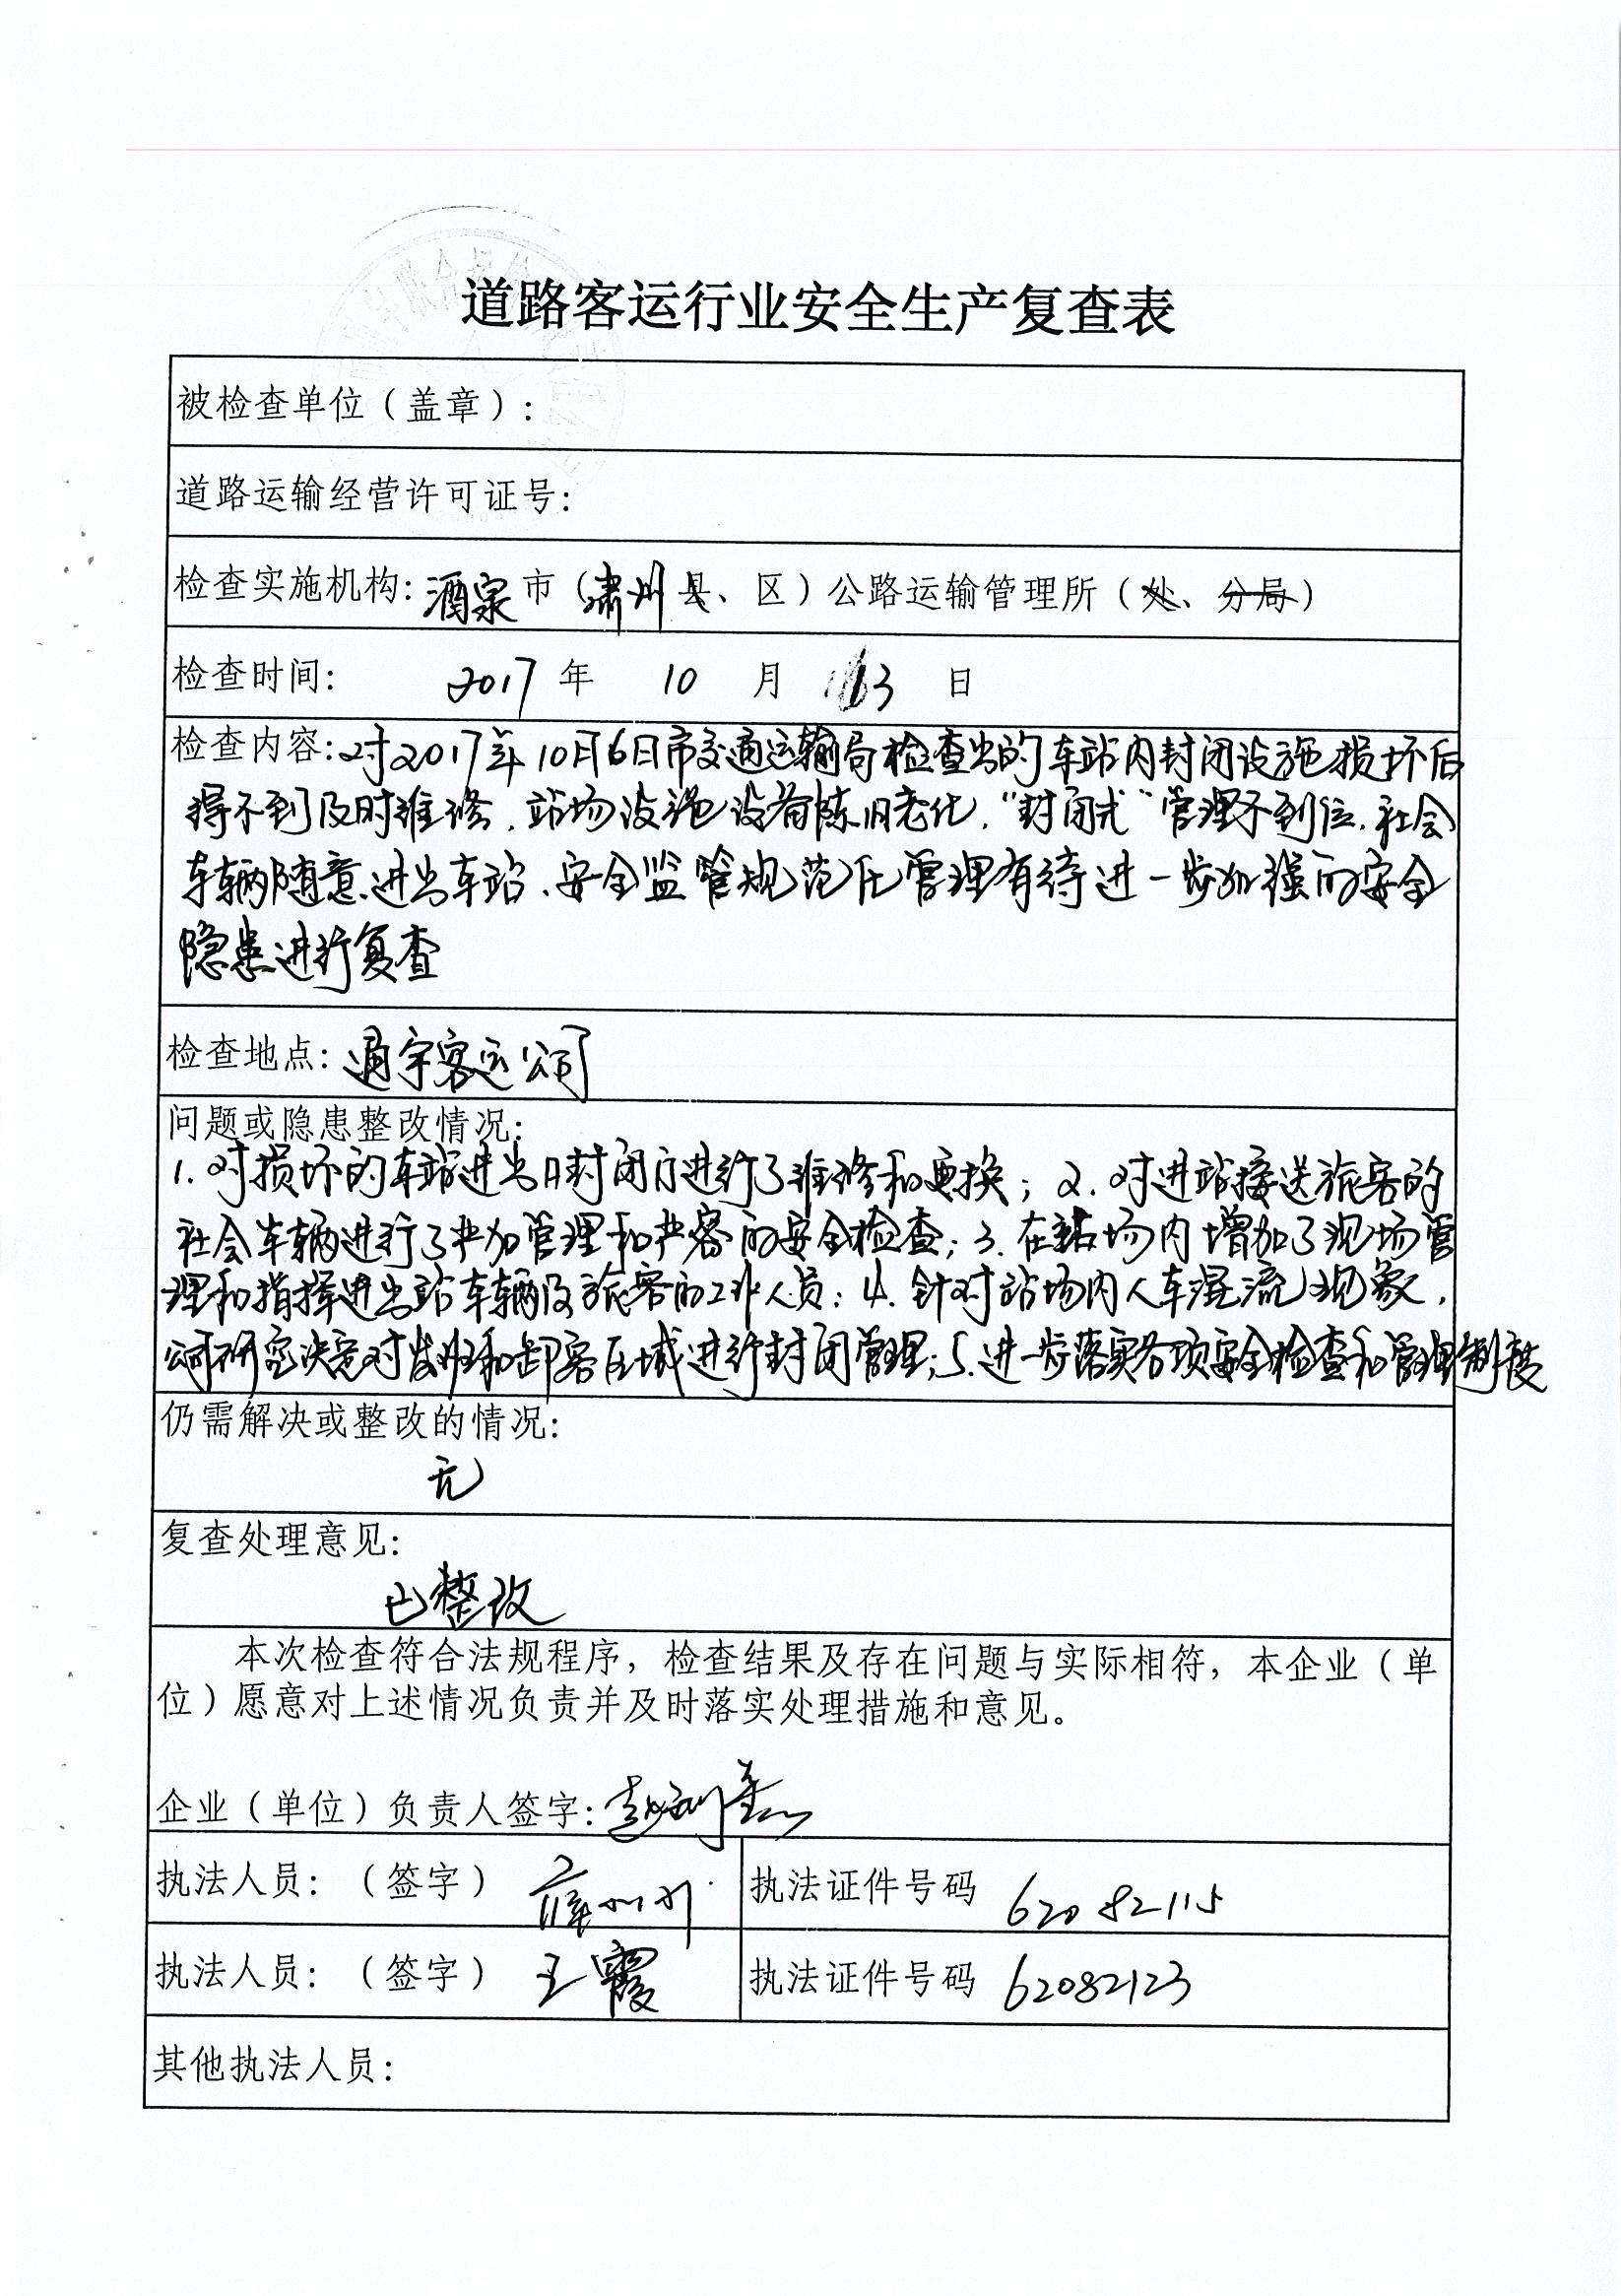 道路客运行业安全生产复查表
被检查单位（盖章）:
道路运输经营许可证号:
检查实施机构: 酒泉市（肃州县、区）公路运输管理所（处、分局）
检查时间: 2017 年 10 月 13 日
检查内容: 对2017年10月6日市交通运输局检查出的车站内封闭设施损坏后
得不到及时维修、站场设施设备陈旧老化、“封闭式”管理不到位、社会
车辆随意进出车站、安全监管规范化管理有待进一步加强的安全
隐患进行复查
检查地点: 通宇客运公司
问题或隐患整改情况:
1.对损坏的车站进出口封闭门进行了维修和更换；2.对进站接送旅客的
社会车辆进行了严加管理和严密的安全检查；3.在站场内增加了现场管
理和指挥进出站车辆及旅客的工作人员；4.针对站场内人车混流现象，
公司研究决定对发班和卸客区域进行封闭管理；5.进一步落实各项安全检查和管理制度
仍需解决或整改的情况:
无
复查处理意见:
已整改
本次检查符合法规程序，检查结果及存在问题与实际相符，本企业（单
位）愿意对上述情况负责并及时落实处理措施和意见。
企业（单位）负责人签字:
执法人员:（签字） 执法证件号码 62082115
执法人员:（签字） 王霞 执法证件号码 62082123
其他执法人员: